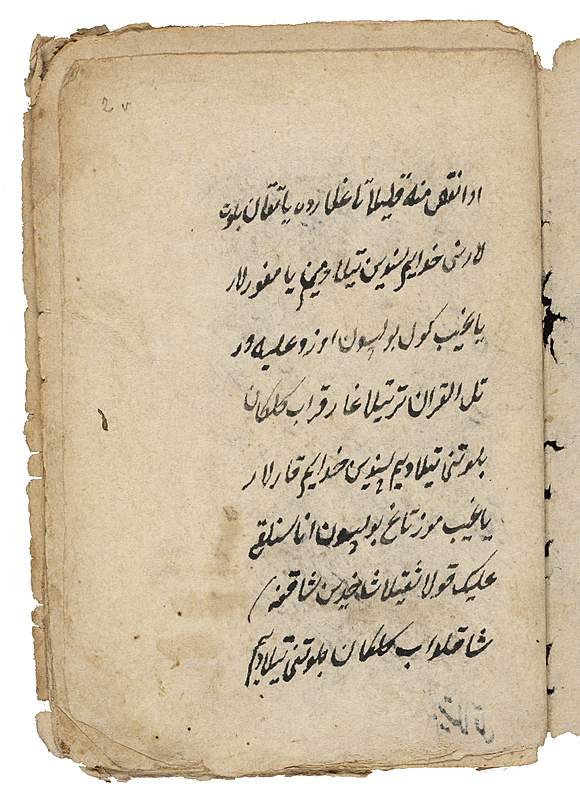 2 v
او انقص منه قلیلا تاغلاردە یاتقان بلوت
لارنی خدایم سندین تیلادیم یامغورلار
یاغیب کول بولسون اوزد علیه ور
تل القران ترتیلا غارقراب کلکان
بلوتنی تیلادیم سندین خدایم قارلار
یاغیب موز تاغ بولسون انا سنلقی
علیک قولا ثقیلا شاخدین شاقمه
شاقلواب کلکان بلوتنی تیلادیم